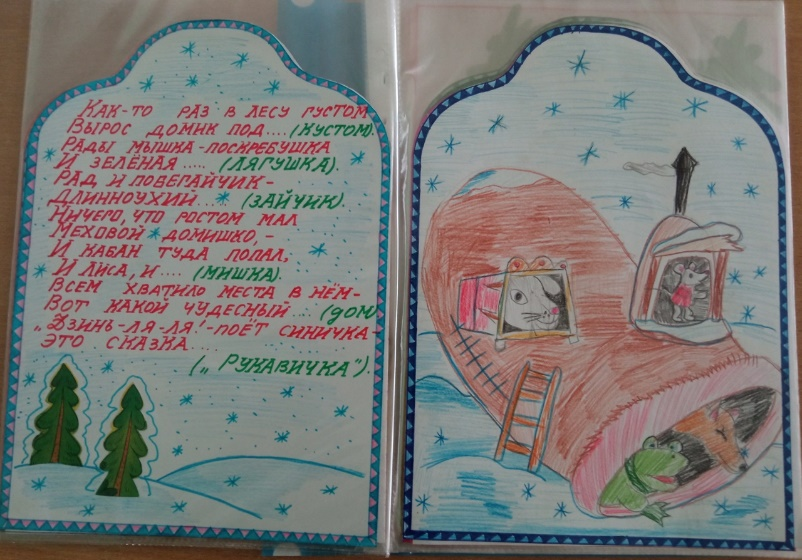 Как-то раз в лесу густом
Вырос домик под.... (кустом).
Рады мышка-поскребушка
И зелёная ..... (лягушка).
Рад и побегайчик-
Длинноухий... (зайчик).
Ничего, что ростом мал
Меховой домишко,-
И кабан туда попал,
И лиса, и .... (мишка).
Всем хватило места в нём-
Вот какой чудесный.... (дом
„Дзинь-ля-ля!"-поёт синичка-
Это сказка...
(„Рукавичка").